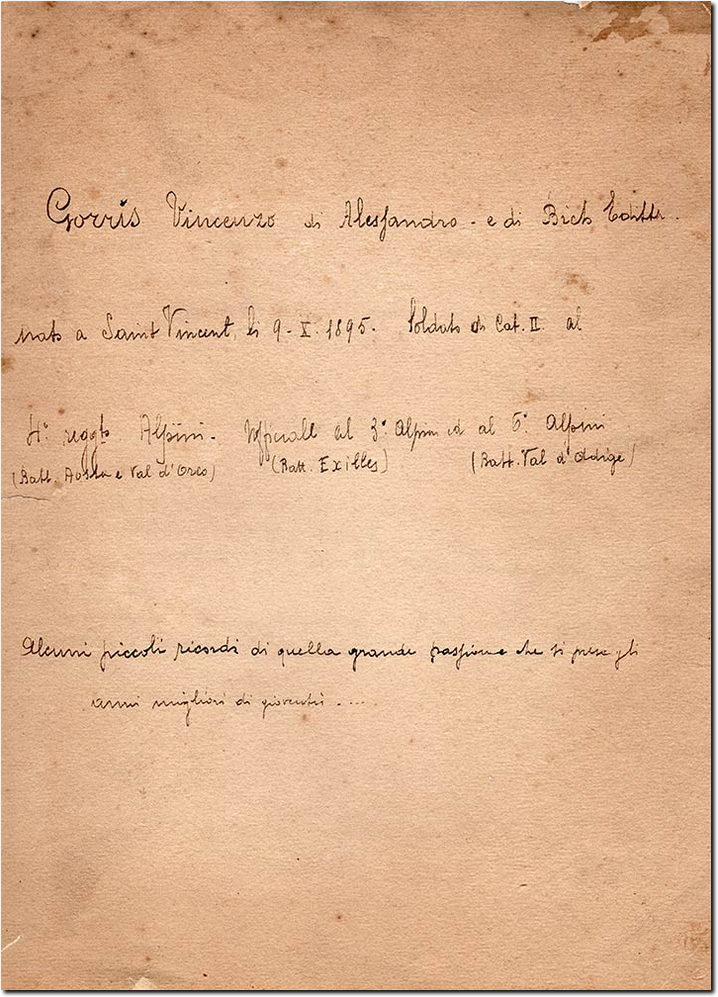 Gorris Vincenzo di Alessandro - e di Bich Editta.
nato a Saint Vincent, li 9 - X. 1895. Soldato di Cat. II al
4° reggto Alpini - Ufficiale al 3° Alpini ed al 6° Alpini
(Batt. Aosta e Val d'Orco) (Batt. Exilles) (Batt. Val d'Adige)
Alcuni piccoli ricordi di quella grande passione che si prese gli
anni migliori di gioventù - ...